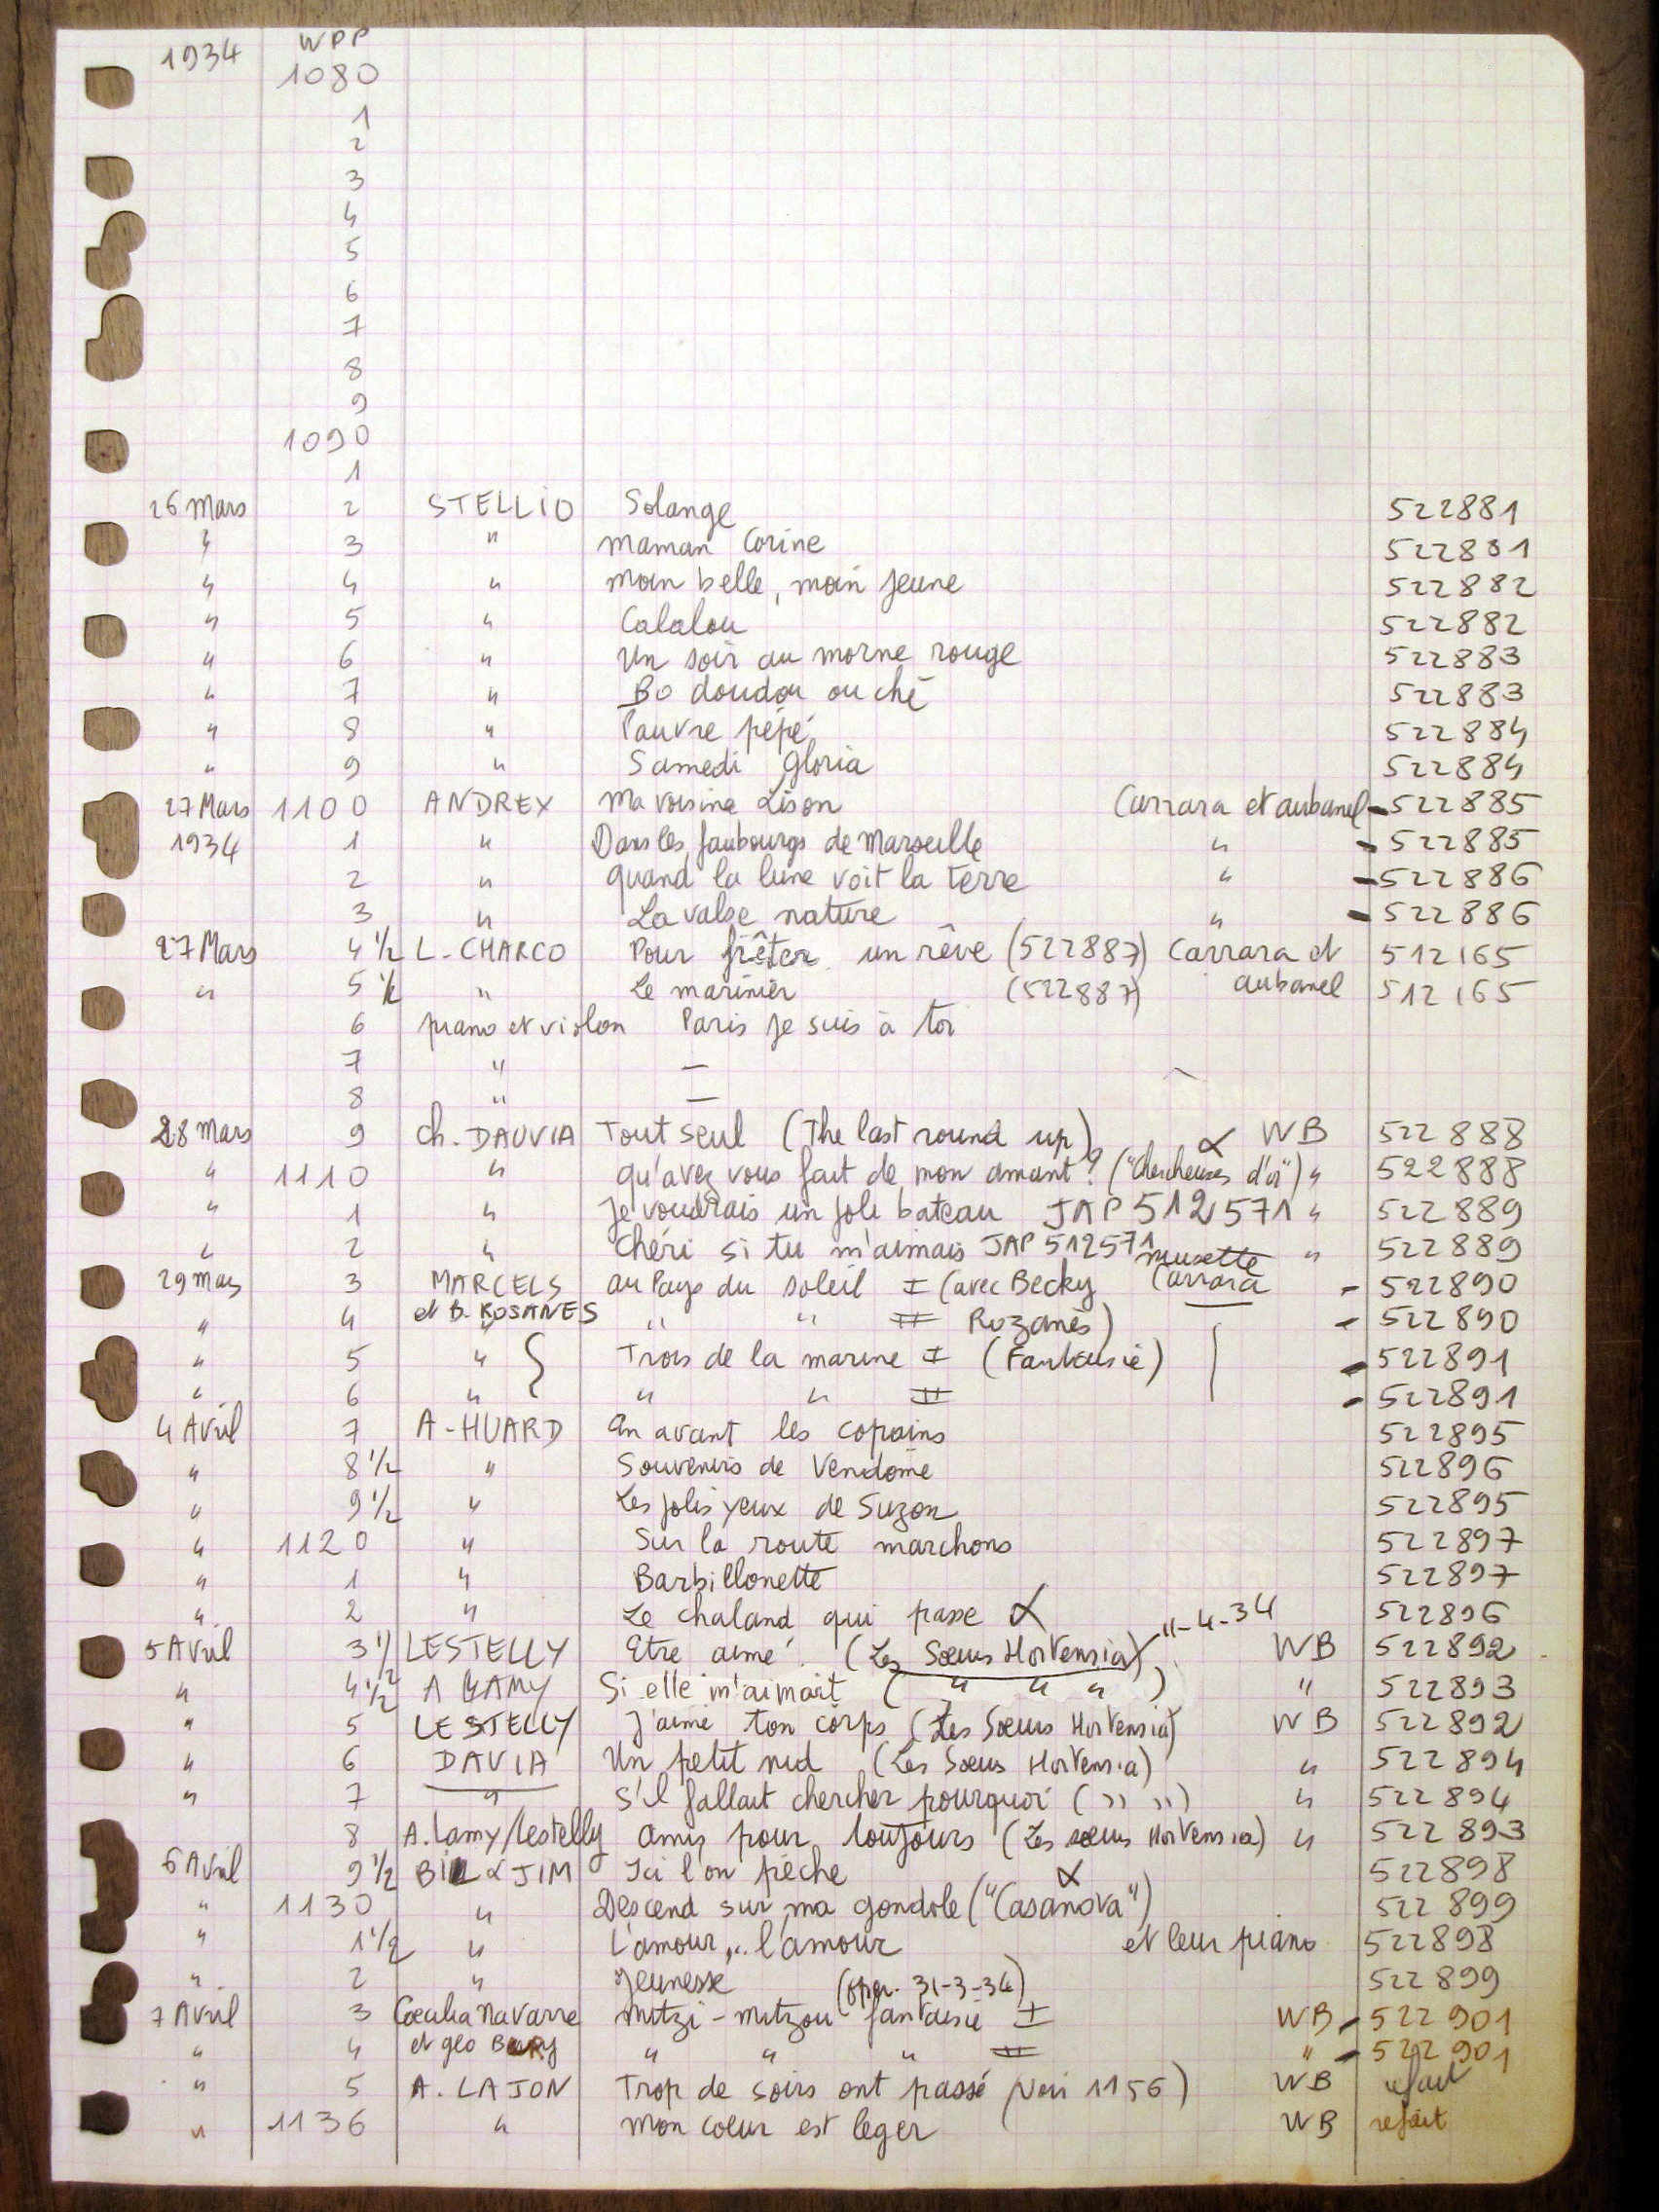 1934 WPP
1080
1
2
3
4
5
6
7
8
9
1090
1
26 Mars 2 STELLIO Solange 522881
" 3 " maman Corine 522881
" 4 " moin belle, moin jeune 522882
" 5 " Calalou 522882
" 6 " Un soir au morne rouge 522883
" 7 " Bo doudou ou ché 522883
" 8 " Pauvre pépé 522884
" 9 " Samedi Gloria 522884
27 Mars 1100 ANDREX Ma voisine Lison Carrara et aubanel - 522885
1934 1 " Dans les faubourgs de Marseille " - 522885
2 " quand la lune voit la terre " - 522886
3 " La valse nature " - 522886
27 Mars 4 1/2 L-CHARCO Pour frêter un rêve (522887) Carrara et 512165
" 5 1/2 " Le marinier (522887) aubanel 512165
6 piano et violon Paris je suis à toi
7 " —
8 " —
28 mars 9 Ch. DAUVIA Tout seul (The last round up) α WB 522888
" 1110 " qu'avez vous fait de mon amant? ("chercheuses d'or") " 522888
" 1 " Je voudrais un joli bateau JAP 512571 " 522889
" 2 " Chéri si tu m'aimais JAP 512571 " 522889
musette
29 mars 3 MARCELS au Pays du soleil I (avec Becky Carrara - 522890
" 4 et B. ROSANES " " II Rozanès) - 522890
" 5 " Trois de la marine I (Fantaisie) - 522891
" 6 " " " II - 522891
4 Avril 7 A-HUARD En avant les copains 522895
" 8 1/2 " Souvenirs de Vendôme 522896
" 9 1/2 " Les jolis yeux de Suzon 522895
" 1120 " Sur la route marchons 522897
" 1 " Barbillonette 522897
" 2 " Le chaland qui passe α 522896
11-4-34
5 Avril 3 1/ LESTELLY Etre aimé (Les Sœurs Hortensia) WB 522892
" 4 1/2 A LAMY Si elle m'aimait ( " " " ) " 522893
" 5 LESTELLY J'aime ton corps (Les Sœurs Hortensia) WB 522892
" 6 DAVIA Un petit nid (Les Sœurs Hortensia) " 522894
" 7 " S'il fallait chercher pourquoi ( " " ) " 522894
8 A. Lamy/Lestelly amis pour toujours (Les sœurs Hortensia) " 522893
6 Avril 9 1/2 BILL & JIM Ici l'on pêche α 522898
" 1130 " Descend sur ma gondole ("Casanova") 522899
" 1 1/2 " L'amour,.. l'amour et leur piano 522898
" 2 " Jeunesse 522899
(oper. 31-3-34)
7 Avril 3 Cœcilia Navarre mitzi-mitzou fantaisie I WB - 522901
" 4 et geo BURY " " " II " - 522901
" 5 A. LAJON Trop de soirs ont passé (voir 1156) WB refait
" 1136 " mon cœur est leger WB refait